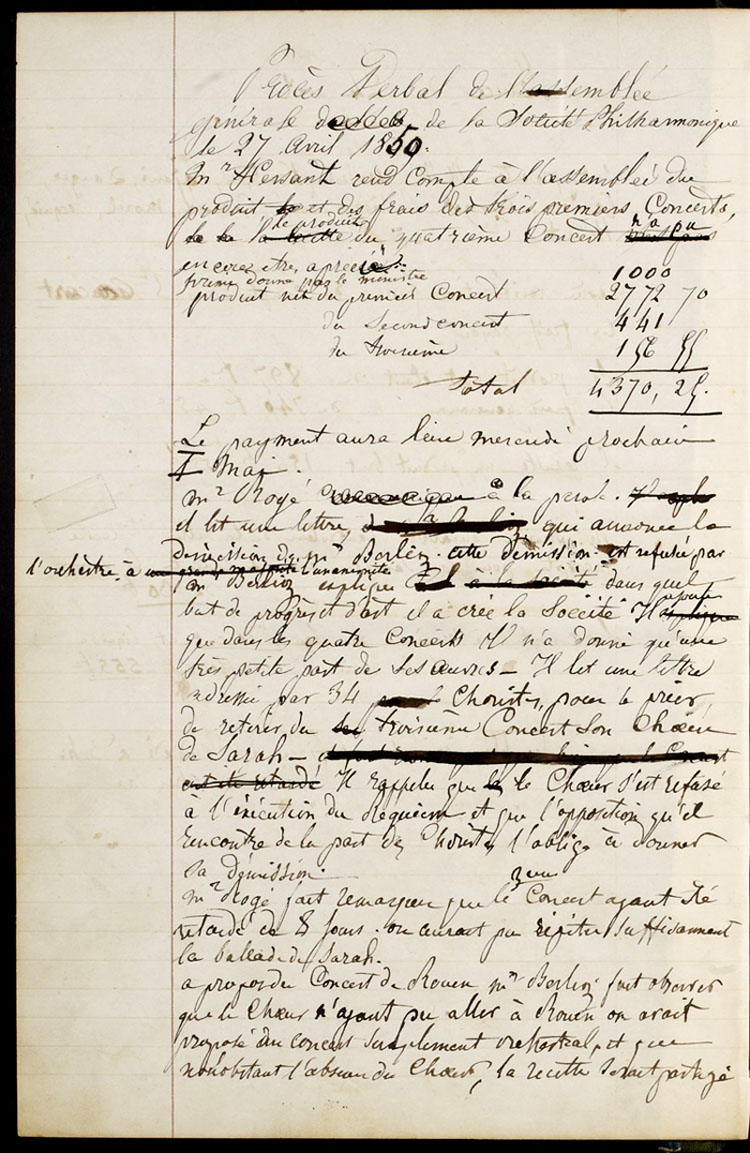 Procès Verbal de l'assemblée
générale de la Société Philharmonique
le 27 Avril 1850.
Mr Hersant rend Compte à l'assemblée du
produit et des frais des trois premiers Concerts,
le produit du quatrième Concert n'a pu
encore être apprécié.
prime donné par le ministre 1000
produit net du premier Concert 2772 70
du Second concert 441
du troisième 156 55
Total 4370, 25.
Le payment aura lieu mercredi prochain
1 Mai.
Mr Rogé a la parole.
il lit une lettre, qui annonce la
démission de Mr Berlioz. cette démission est refusée par
l'orchestre, à l'unanimité
Mr Berlioz explique dans quel
but de progrès et d'art il a créé la Société Il ajoute
que dans les quatre Concerts Il n'a donné qu'une
très petite part de ses œuvres - Il lit une lettre
adressée par 34 Choristes, pour le prier
de retirer du troisième Concert son Chœur
de Sarah -
Il rappelle que le Chœur s'est refusé
à l'exécution du Requiem et que l'opposition qu'il
rencontre de la part des Choristes l'oblige à donner
sa démission.
Mr Rogé fait remarquer que le 3eme Concert ayant été
retardé de 8 jours. on aurait pu répéter suffisamment
la ballade de Sarah.
a propos du Concert de Rouen Mr Berlioz fait observer
que le Chœur n'ayant pu aller à Rouen on avait
proposé un concert simplement orchestral, et que
nonobstant l'absence du Chœur, la recette serait partagé